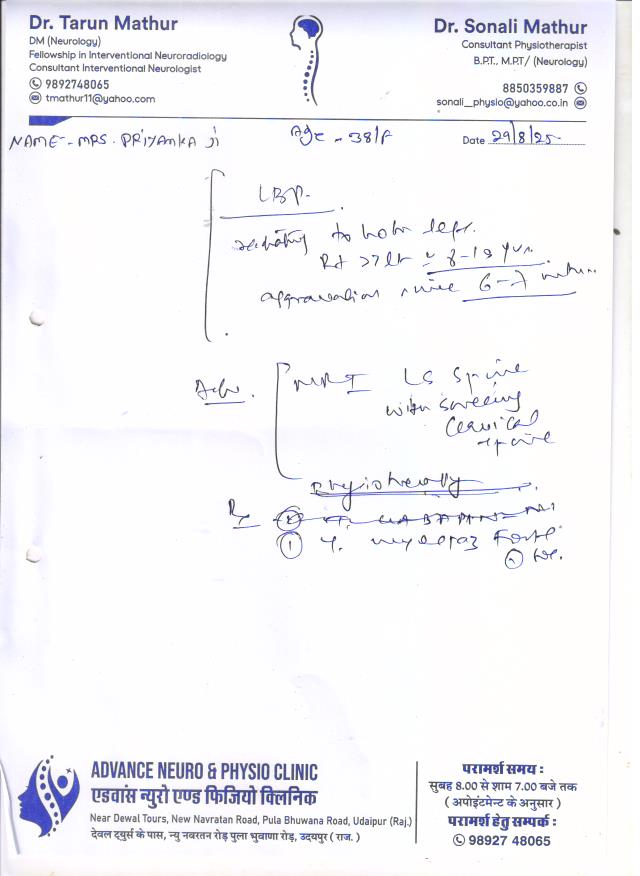 Dr. Tarun Mathur
DM (Neurology)
Fellowship in Interventional Neuroradiology
Consultant Interventional Neurologist
9892748065
tmathur11@yahoo.com
Dr. Sonali Mathur
Consultant Physiotherapist
B.P.T., M.P.T/ (Neurology)
8850359887
sonali_physio@yahoo.co.in
NAME - MRS. PRIYANKA JI
Age - 38/F
Date 29/8/25
LBP
radiating to both legs.
Rt >> Lt
aggravation since 6-7
Adv. MRI LS Spine
with screening
Cervical
spine
physiotherapy
Rx
① T. Forte
ADVANCE NEURO & PHYSIO CLINIC
एडवांस न्युरो एण्ड फिजियो क्लिनिक
Near Dewal Tours, New Navratan Road, Pula Bhuwana Road, Udaipur (Raj.)
देवल ट्युर्स के पास, न्यु नवरतन रोड़ पुला भुवाणा रोड़, उदयपुर ( राज. )
परामर्श समय :
सुबह 8.00 से शाम 7.00 बजे तक
( अपोइंटमेन्ट के अनुसार )
परामर्श हेतु सम्पर्क :
98927 48065